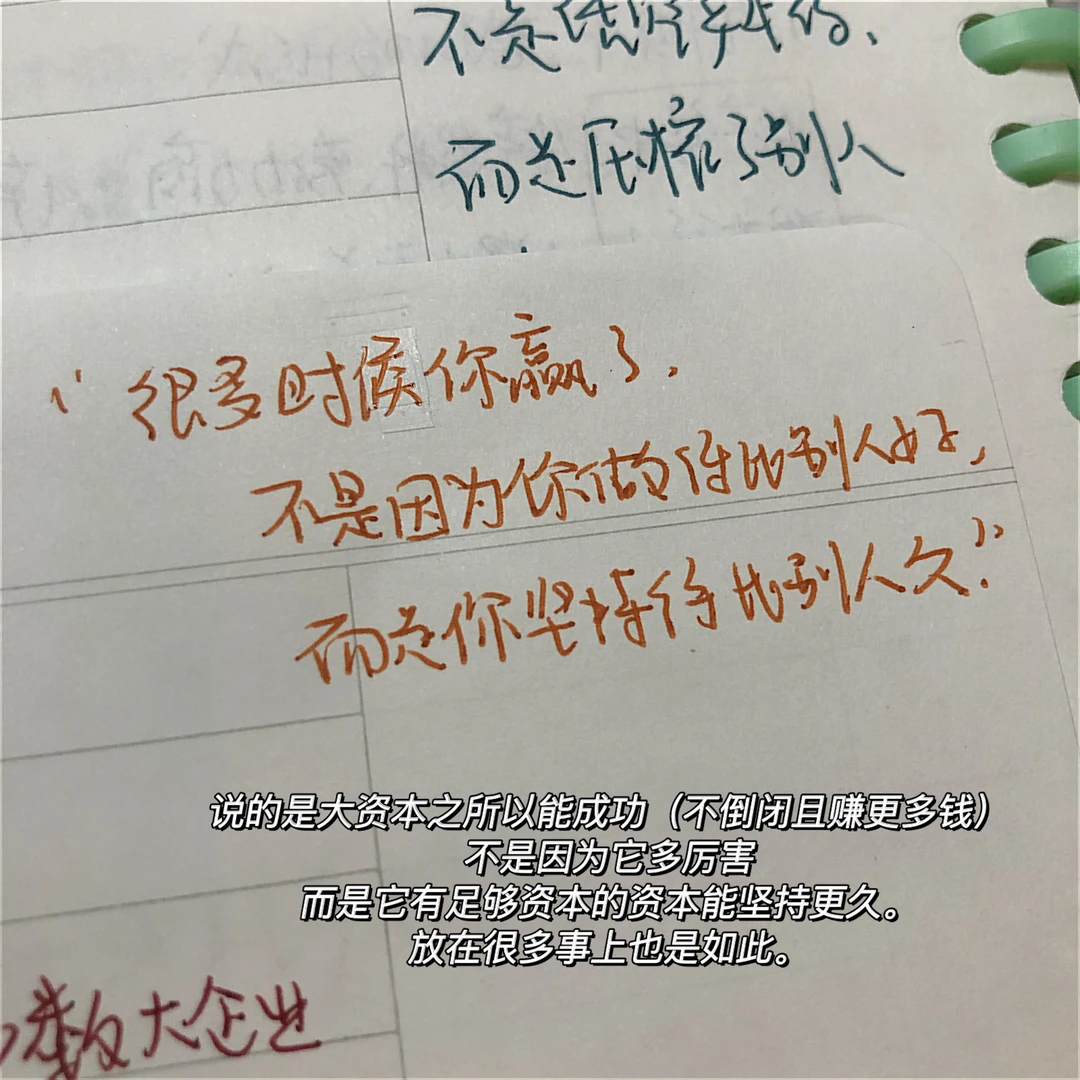 不是
而是压榨了别人
“很多时候你赢了.
不是因为你做得比别人好,
而是你坚持得比别人久.”
说的是大资本之所以能成功（不倒闭且赚更多钱）
不是因为它多厉害
而是它有足够资本的资本能坚持更久。
放在很多事上也是如此。
数大企业